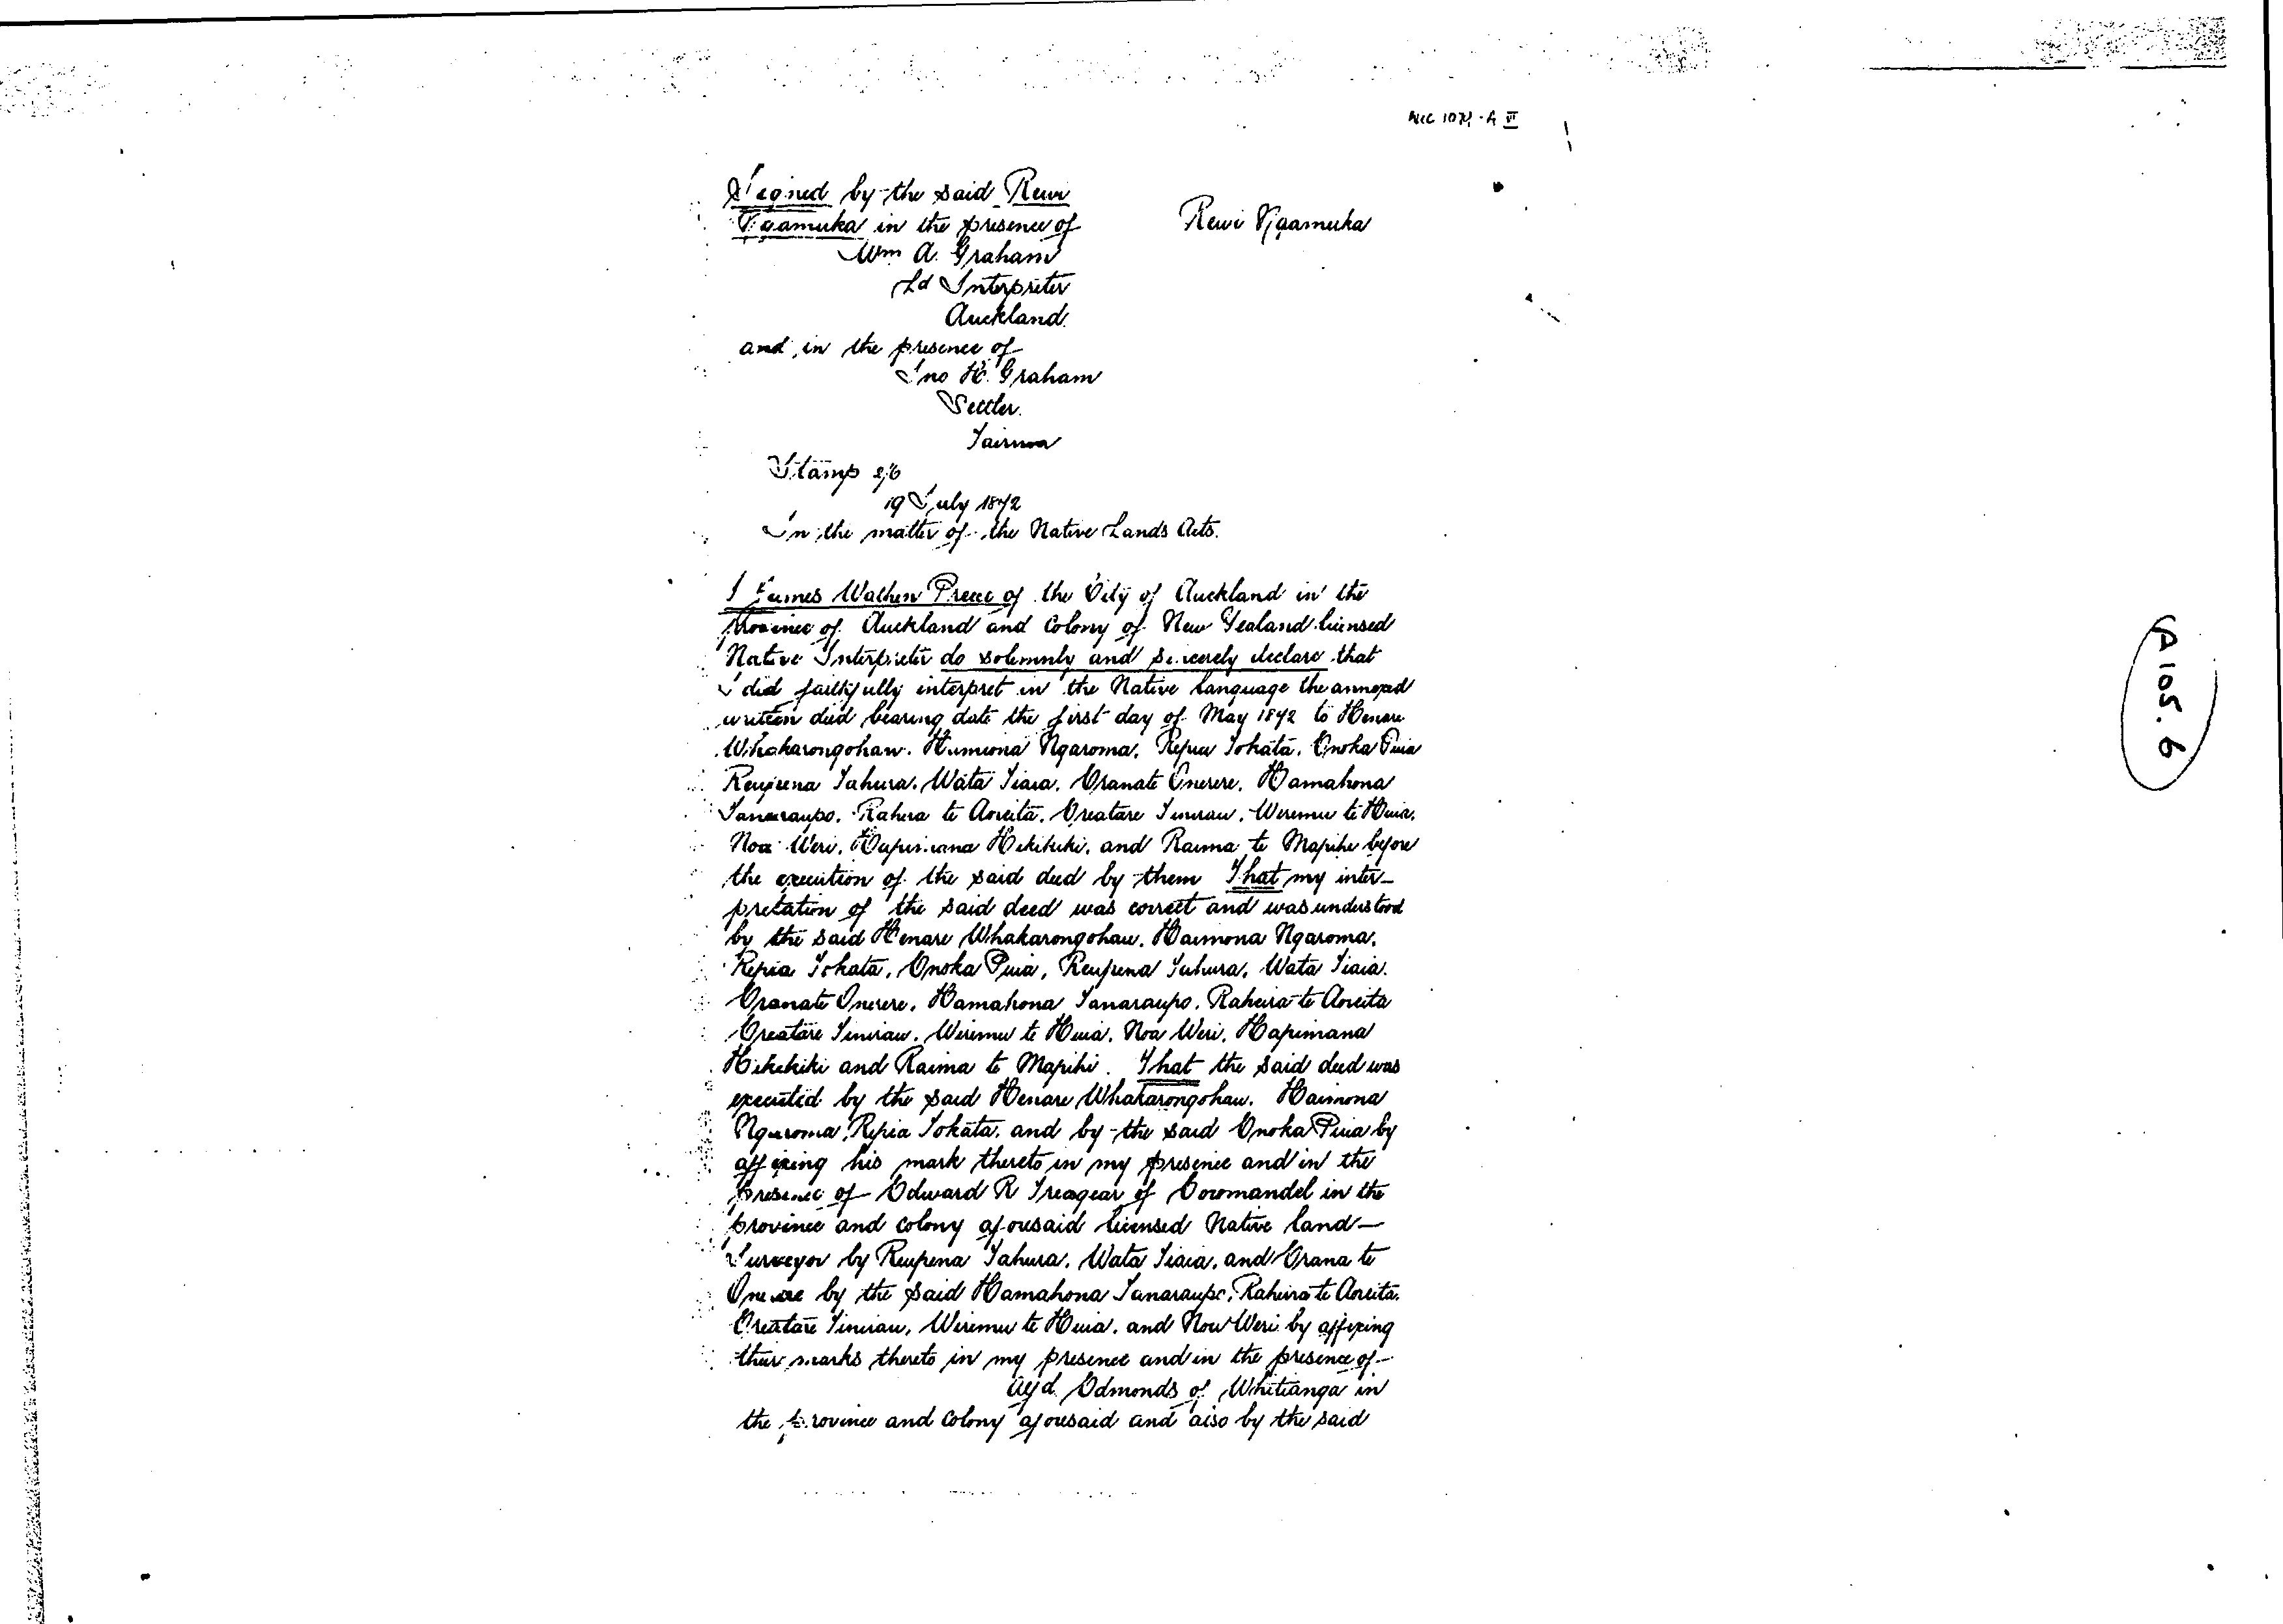 A105.6
Signed by the said Rewi
Ngamuka in the presence of
Rewi Ngamuka
Wm A. Graham
Ld Interpreter
Auckland.
and in the presence of
Jno H. Graham
Settler.
Tairua
Stamp 2/6
19 July 1872
In the matter of the Native Lands Acts.
I James Wathen Preece of the City of Auckland in the
Province of Auckland and Colony of New Zealand licensed
Native Interpreter do solemnly and sincerely declare that
I did faithfully interpret in the Native language the annexed
written deed bearing date the first day of May 1872 to Henare
Whakarongohau. Humiona Ngaroma. Repia Tokata. Enoka Puia
Reupena Tahura. Wata Tiaia. Eranate Onerere. Hamahona
Tanaraupo. Rahera te Aoreita. Ereatare Tinirau. Weremu te Huia.
Noa Weri. Hapimana Hikikiki. and Raima te Mapihi before
the execution of the said deed by them That my inter-
pretation of the said deed was correct and was understood
by the said Henare Whakarongohau. Haimona Ngaroma.
Repia Tokata. Enoka Puia, Reupena Tuhura. Wata Tiaia.
Eranate Onerere. Hamahona Tanaraupo. Raheira te Aoreita
Ereatare Tinirau. Wiremu te Huia. Noa Weri. Hapimana
Hikikiki and Raima te Mapihi. That the said deed was
executed by the said Henare Whakarongohau. Haimona
Ngaroma, Repia Tokata. and by the said Enoka Puia by
affixing his mark thereto in my presence and in the
presence of Edward R Treagear of Coromandel in the
province and colony aforesaid licensed Native land
Surveyor by Reupena Tahura. Wata Tiaia. and Erana te
by the said Hamahona Tanaraupo, Raheira te Aoreita.
Ereatare Tinirau. Wiremu te Huia. and Noa Weri by affixing
their marks thereto in my presence and in the presence of
Edmonds of Whitianga in
the province and colony aforesaid and also by the said